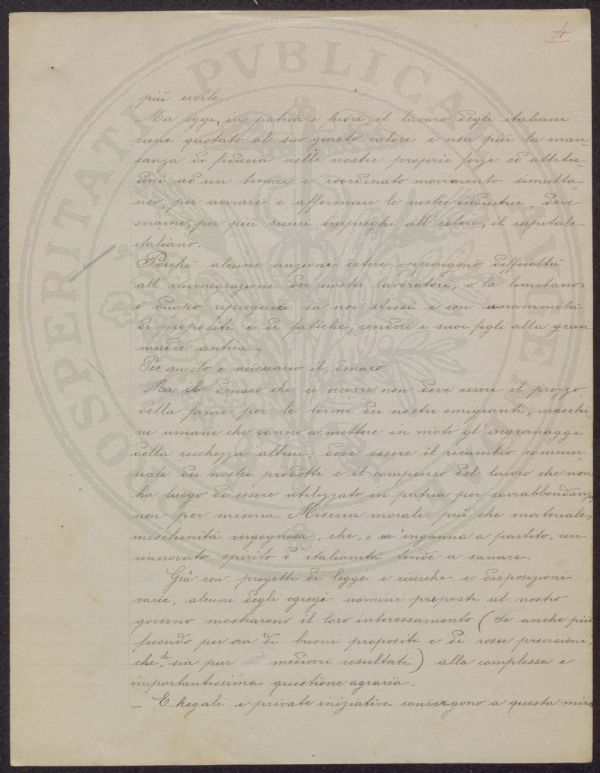 4
più civile.
Ma oggi, in patria e fuori, il lavoro degli italiani
viene quotato al suo giusto valore e non più la man-
canza di fiducia nelle nostre proprie forze ed attitu-
dini ad un tenace e coordinato movimento simulta-
neo, per avviare e affermare le nostre industrie, deve
sviarne, per più sicuri impieghi all'estero, il capitale
italiano.
Poichè alcune nazioni estere oppongono difficoltà
all'immigrazione dei nostri lavoratori, o la limitano,
è duopo ripiegarci su noi stessi e con unanimità
di propositi e di fatiche, rendere i suoi figli alla gran
madre antica.
Per questo è necessario il denaro.
Ma il denaro che ci occorre non deve essere il prezzo
della fame per le torme dei nostri emigranti, macchi
ne umane che vanno a mettere in moto gl'ingranaggi
della ricchezza altrui; deve essere il ricambio commer-
ciale dei nostri prodotti e il compenso del lavoro che non
ha luogo di essere utilizzato in patria per sovrabbondanza
non per miseria. Miseria morale più che materiale,
meschinità vergognosa, che, o m'inganna a partito, un
rinnovato spirito d'italianità tende a sanare.
Già con progetti di leggi e ricerche e disposizioni
varie, alcuni degli egregi uomini preposti al nostro
governo mostrarono il loro interessamento (se anche più
fecondo per ora di buoni propositi e di rosee previsioni
che di sia pur mediocri resultati) alla complessa e
importantissima questione agraria.
— E regali e private iniziative convergono a questa mira
PROSPERITATI PVBLICAE